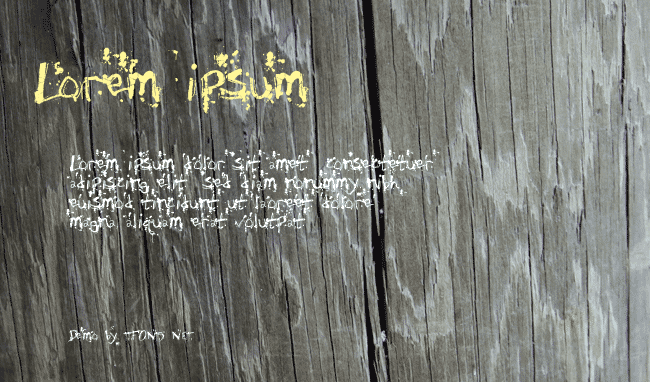 Lorem ipsum
Lorem ipsum dolor sit amet consectetuer
adipiscing elit sed diam nonummy nibh
euismod tincidunt ut laoreet dolore
magna aliquam erat volutpat
Demo by TFONT NET